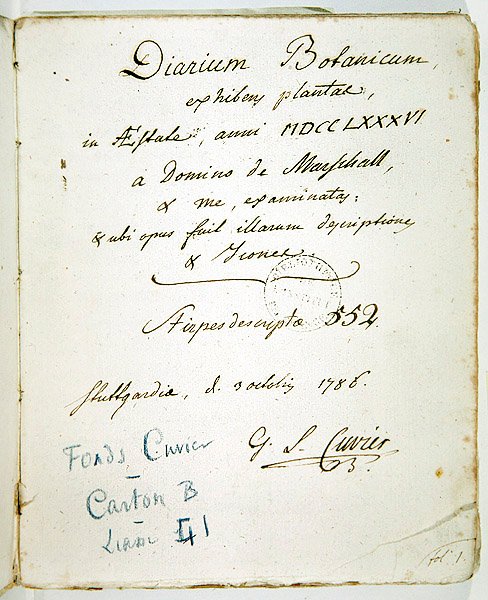 Diarium Botanicum,
exhibens plantas,
in Æstate, anni MDCCLXXXVI
a Domino de Marschall,
& me, examinatas;
& ubi opus fuit illarum descriptiones
& Icones.
Stirpes descriptæ 552.
Stuttgardiæ, d. 3 octobris 1786.
G. L. Cuvier
Fonds Cuvier
Carton B
Liasse 41
fol. 1.